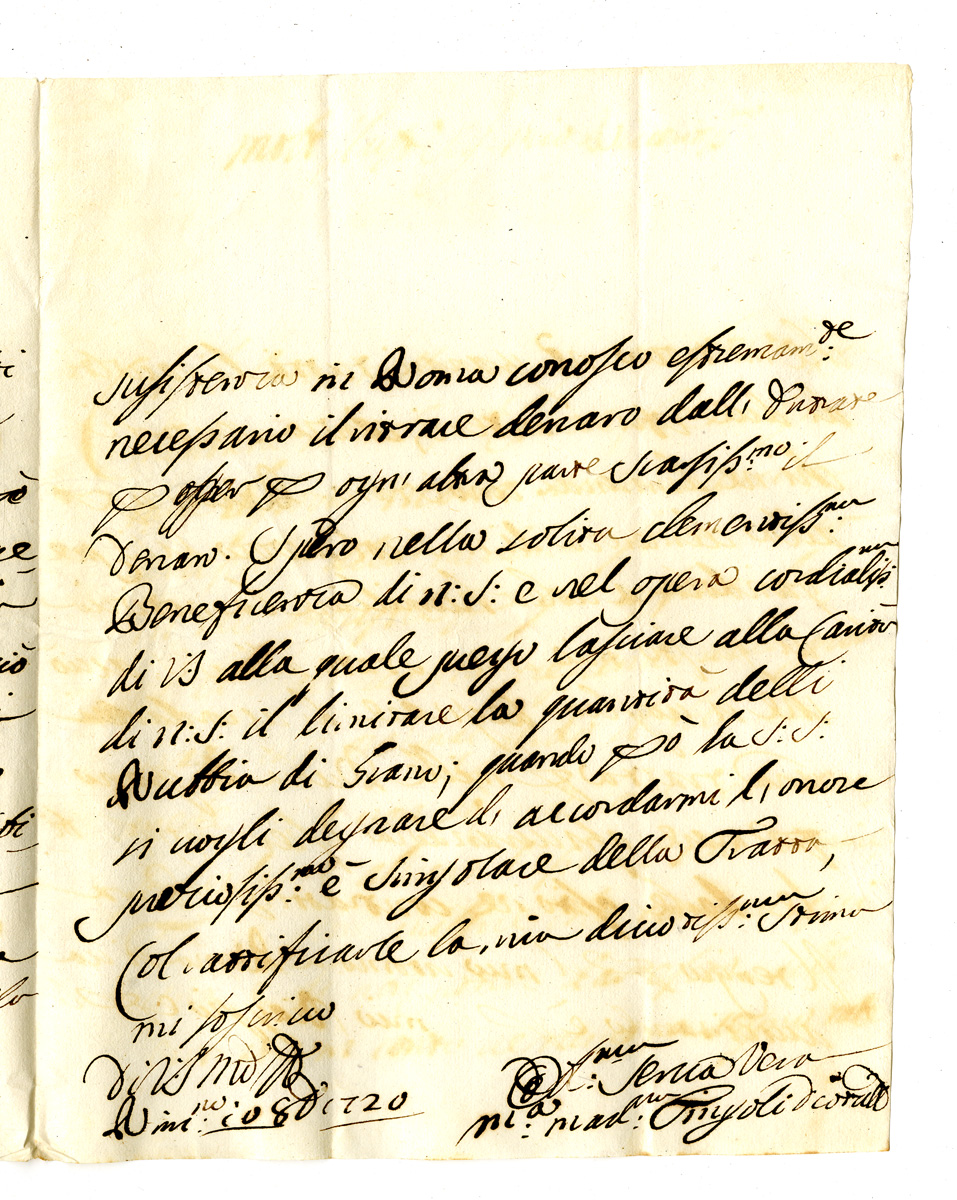 susistenza in Roma conosco estremam:te
necessario il ritrarre denaro dall,
p esser p ogni altra parte scarsiss:mo il
denaro. Spero nella solita clementiss:ma
Beneficenza di N: S: e nel opera cordialiss:ma
di VS alla quale prego lasciare alla Carità
di N: S: il limitare la quantità delli
Rubbia di Grano; quando pò la S: S:
si vogli degnare di accordarmi l, onore
pretiosiss:mo è singolare della Tratta,
Col ratificarle la mia divotiss:ma stima
mi soscrivo
Di VS
Rim:no 10 8 1720
Serva Vera
M:a Mad:na Pingoli